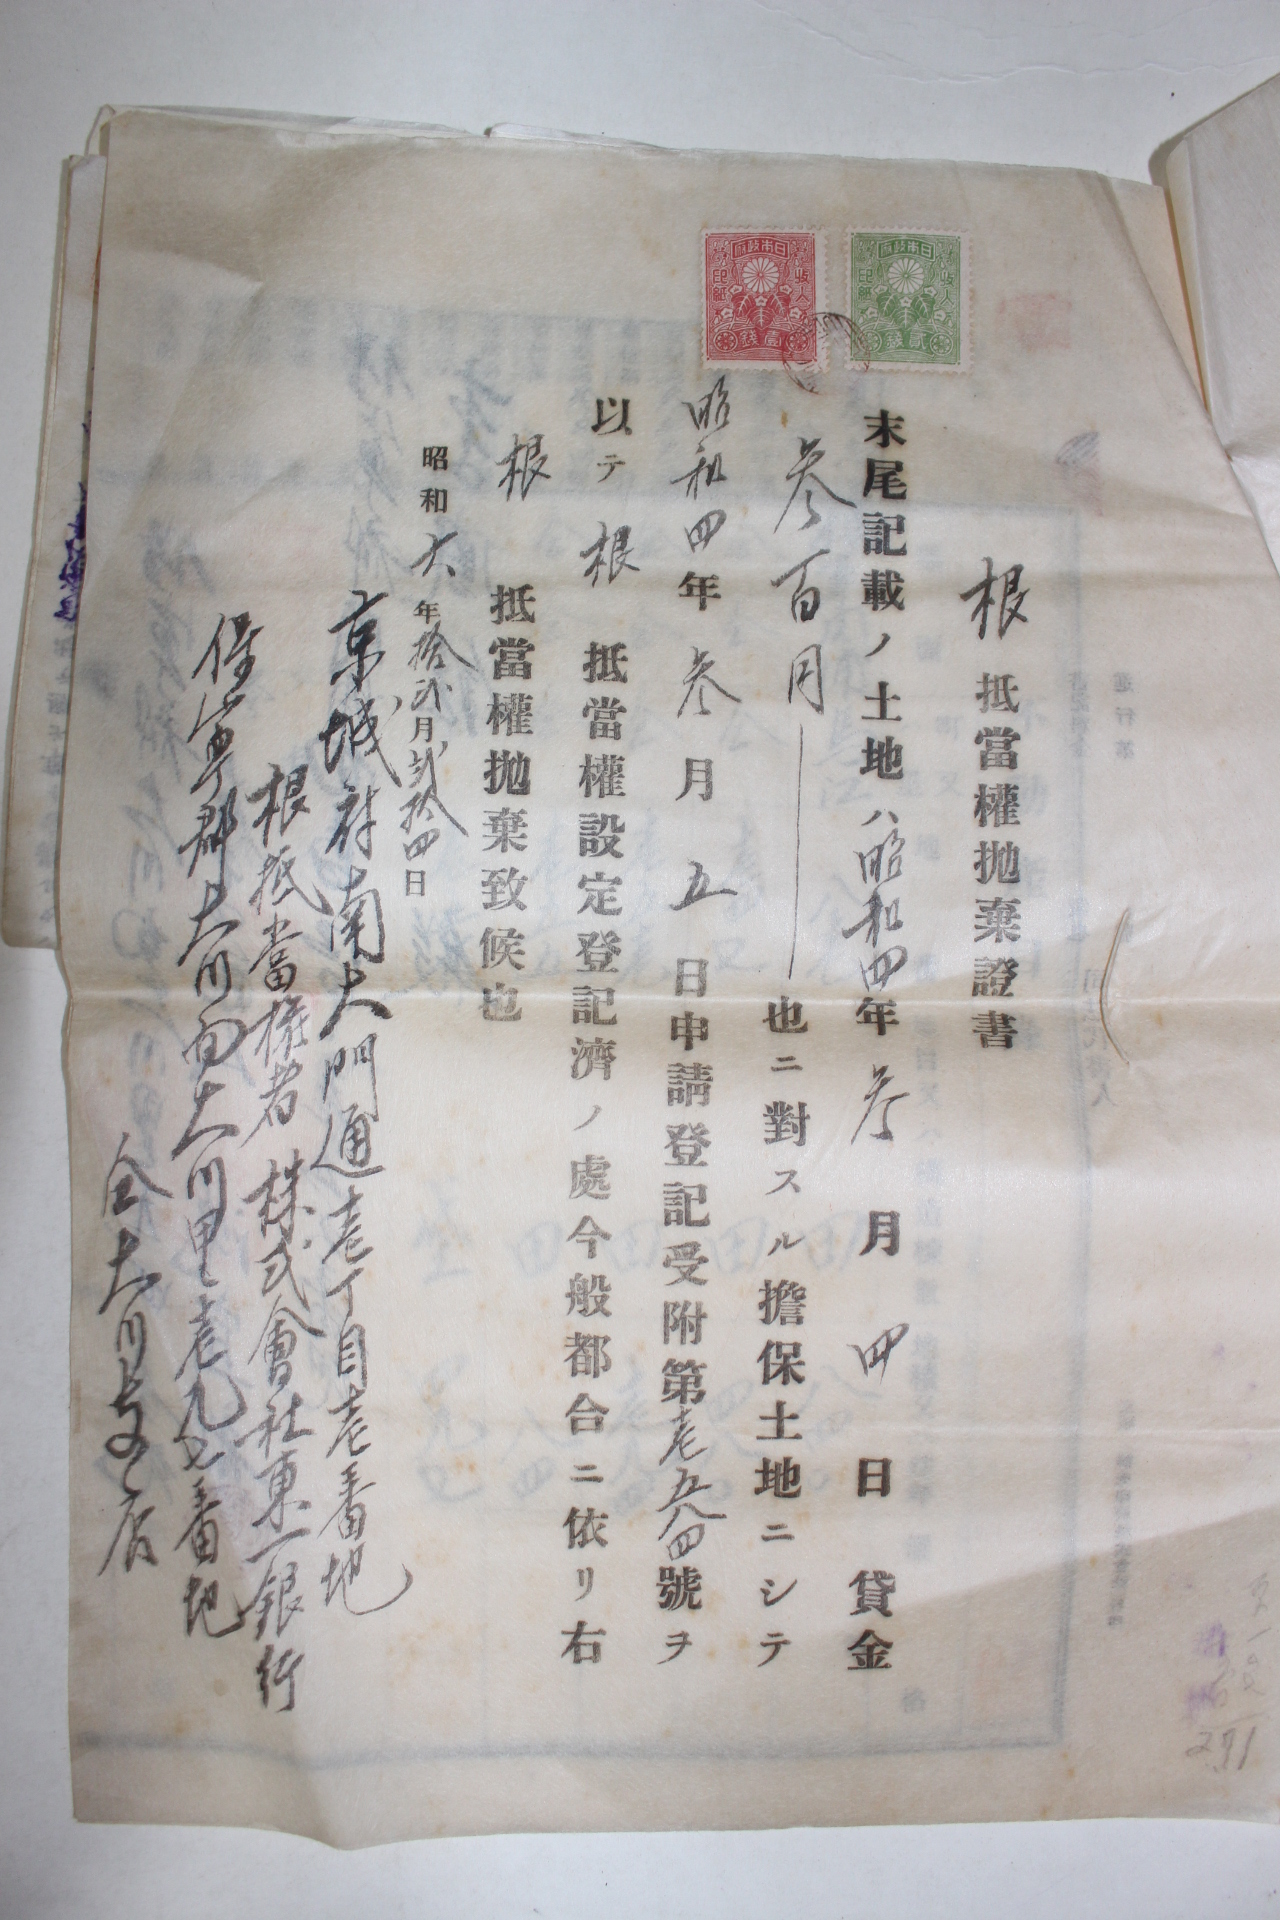 日本政府
收入印紙
貳錢
日本政府
收入印紙
壹錢
根抵當權抛棄證書
末尾記載ノ土地ハ昭和四年参月四日貸金
参百円也ニ對スル擔保土地ニシテ
昭和四年参月五日申請登記受附第壱五八四號ヲ
以テ根抵當權設定登記濟ノ處今般都合ニ依リ右
根抵當權抛棄致候也
昭和六年拾弐月弐拾四日
京城府南大門通壱丁目壱番地
根抵當権者 株式會社東一銀行
保寧郡大川面大川里壱九七番地
仝大川支店
271